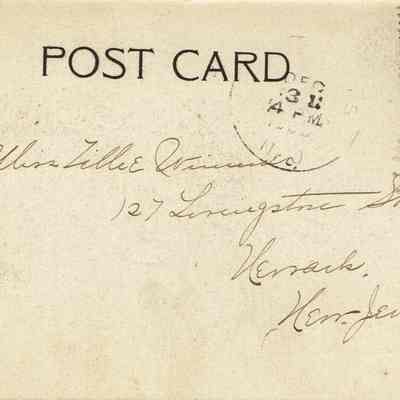 POST CARD
DEC
31
4 PM
Miss Tillie
127 Livingston St
Newark.
New Jer